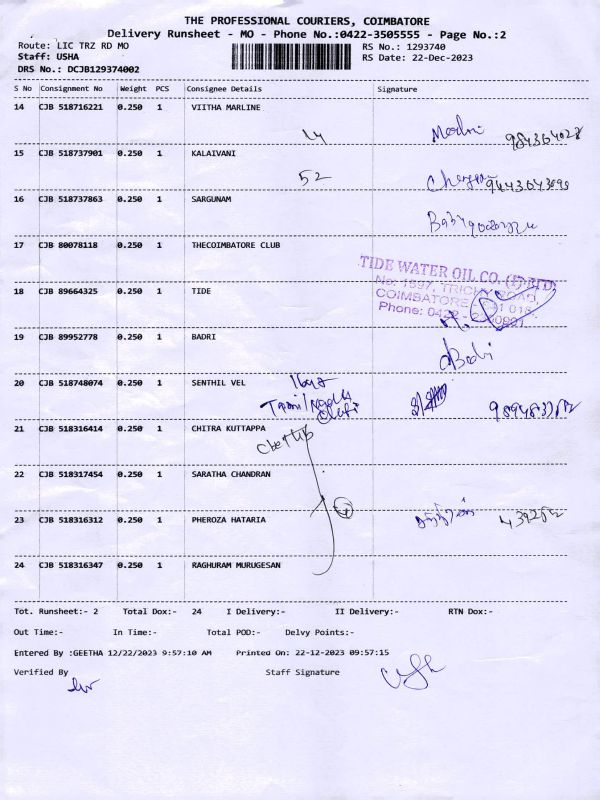 THE PROFESSIONAL COURIERS, COIMBATORE
Delivery Runsheet - MO - Phone No.:0422-3505555 - Page No.:2
Route: LIC TRZ RD MO RS No.: 1293740
Staff: USHA RS Date: 22-Dec-2023
DRS No.: DCJB129374002
S No Consignment No Weight PCS Consignee Details Signature
14 CJB 518716221 0.250 1 VIITHA MARLINE
14
15 CJB 518737901 0.250 1 KALAIVANI
52
16 CJB 518737863 0.250 1 SARGUNAM
17 CJB 80078118 0.250 1 THECOIMBATORE CLUB
TIDE WATER OIL CO. (I) LTD
No: 1597, TRICHY ROAD,
18 CJB 89664325 0.250 1 TIDE
COIMBATORE - 641 018.
Phone: 0422 -
19 CJB 89952778 0.250 1 BADRI
Badri
20 CJB 518748074 0.250 1 SENTHIL VEL
21 CJB 518316414 0.250 1 CHITRA KUTTAPPA
22 CJB 518317454 0.250 1 SARATHA CHANDRAN
23 CJB 518316312 0.250 1 PHEROZA HATARIA
24 CJB 518316347 0.250 1 RAGHURAM MURUGESAN
Tot. Runsheet:- 2 Total Dox:- 24 I Delivery:- II Delivery:- RTN Dox:-
Out Time:- In Time:- Total POD:- Delvy Points:-
Entered By :GEETHA 12/22/2023 9:57:10 AM Printed On: 22-12-2023 09:57:15
Verified By Staff Signature